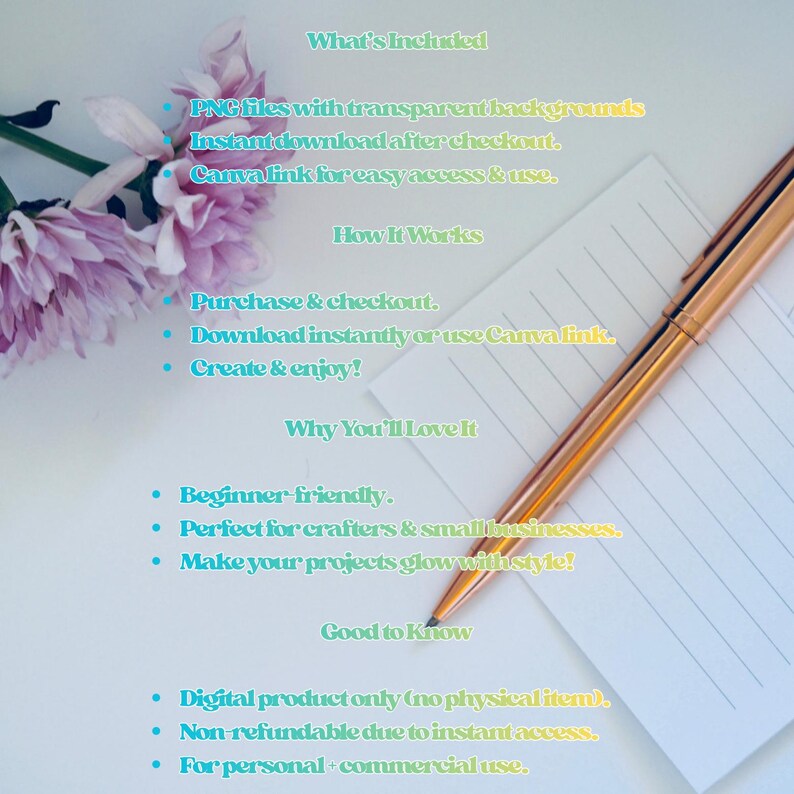 What's Included
• PNG files with transparent backgrounds
• Instant download after checkout.
• Canva link for easy access & use.
How It Works
• Purchase & checkout.
• Download instantly or use Canva link.
• Create & enjoy!
Why You'll Love It
• Beginner-friendly.
• Perfect for crafters & small businesses.
• Make your projects glow with style!
Good to Know
• Digital product only (no physical item).
• Non-refundable due to instant access.
• For personal + commercial use.